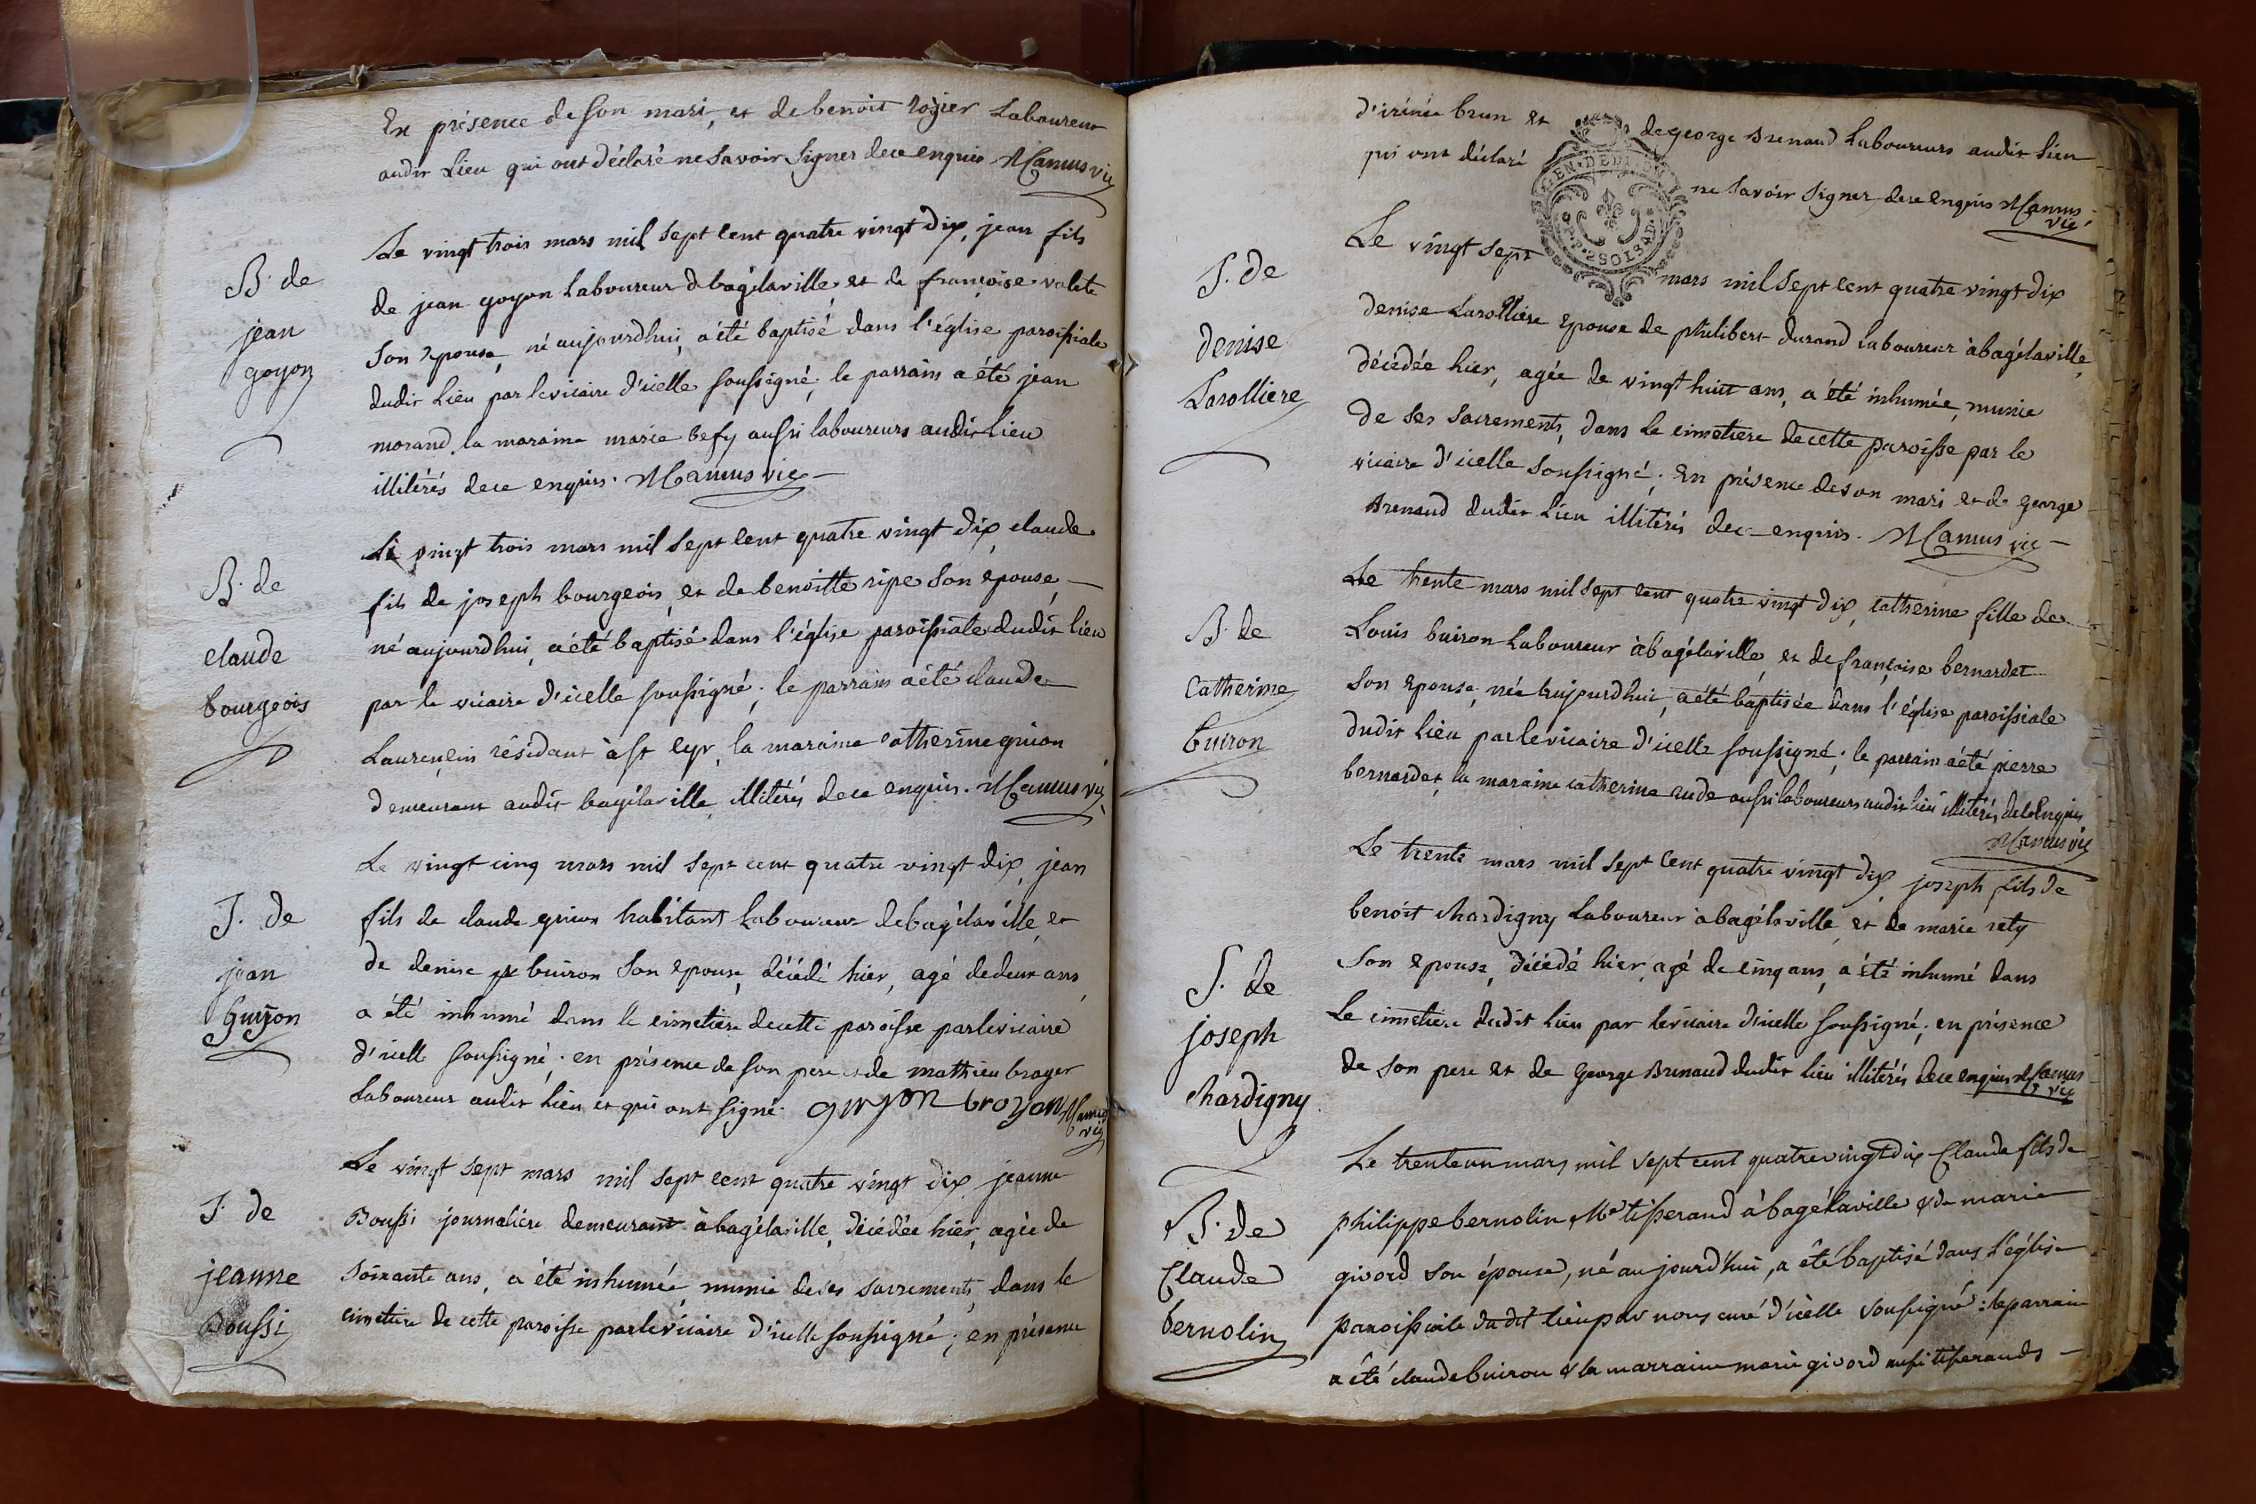 En présence de son mari, et de benoit rogier Laboureur
audit Lieu qui ont déclaré ne Savoir Signer de ce enquis MCamus vic
B. de
jean
goyon
Le vingt trois mars mil Sept Cent quatre vingt dix, jean fils
de jean goyon Laboureur de bagélaville et de françoise valete
Son épouse, né aujourdhui, a été baptisé dans l'église paroissiale
dudit Lieu par le vicaire d'icelle soussigné; le parrain a été jean
morand, la maraine marie befy aussi laboureurs audit Lieu
illitérés de ce enquis. MCamus vic
B. de
claude
bourgeois
Le vingt trois mars mil Sept Cent quatre vingt dix, claude
fils de joseph bourgeois, et de benoitte ripe Son épouse
né aujourdhui, a été baptisé dans l'église paroissiale dudit lieu
par le vicaire d'icelle soussigné; le parrain a été claude
Laurençin résidant à st Cyr, la maraine Catherine guion
demeurant audit bagélaville, illitérés de ce enquis. MCamus vic
S. de
jean
Guijon
Le vingt cinq mars mil Sept cent quatre vingt dix, jean
fils de claude guion habitant Laboureur de bagélaville, et
de denise buiron Son épouse, décédé hier, agé de deux ans,
a été inhumé dans le cimetiere de cette paroisse par le vicaire
d'icelle soussigné; en présence de son pere et de mathieu broyer
Laboureur audit Lieu, et qui ont signé. guyon broyon MCamus
vic
S. de
jeanne
Boussi
Le vingt Sept mars mil Sept cent quatre vingt dix, jeanne
Boussi journaliere demeurant à bagélaville, décédée hier, agée de
Soixante ans, a été inhumée, munie de ses sacrements, dans le
cimetiere de cette paroisse par le vicaire d'icelle soussigné; en présence
d'irénée brun et de george Brenaud Laboureurs audit Lieu
qui ont déclaré ne Savoir Signer de ce enquis MCamus
vic
GEN. DE DIJON
2 SOLS
S. de
denise
Larolliere
Le vingt Sept mars mil Sept Cent quatre vingt dix
denise Larolliere épouse de philibert durand laboureur à bagélaville,
décédée hier, agée de vingt huit ans, a été inhumée, munie
de ses sacrements, dans le cimetiere de cette paroisse par le
vicaire d'icelle soussigné; En présence de son mari et de george
Brenaud dudit Lieu illitérés de ce enquis. MCamus vic
B. de
Catherine
buiron
Le trente mars mil Sept cent quatre vingt dix, Catherine fille de
Louis buiron Laboureur à bagélaville, et de françoise bernardet
Son épouse, née aujourdhui, a été baptisée dans l'église paroissiale
dudit Lieu par le vicaire d'icelle soussigné; le parrain a été pierre
bernardet, la maraine catherine rude aussi laboureurs audit lieu illitérés de ce Enquis
MCamus vic
S. de
joseph
Chardigny
Le trente mars mil Sept Cent quatre vingt dix joseph fils de
benoit Chardigny Laboureur à bagélaville, et de marie rety
Son épouse, décédé hier, agé de cinq ans, a été inhumé dans
Le cimetiere dudit Lieu par le vicaire d'icelle soussigné; en présence
de Son pere et de George Brenaud dudit Lieu illitérés de ce enquis MCamus
vic
B. de
Claude
bernolin
Le trente un mars mil sept cent quatre vingt dix Claude fils de
philippe bernolin Me tisserand à bagélaville & de marie
givord son épouse, né au jourd'hui, a été baptisé dans l'église
paroissiale du dit lieu par nous curé d'icelle soussigné: le parrain
a été claude buiron & la marraine marie givord aussi tisserands